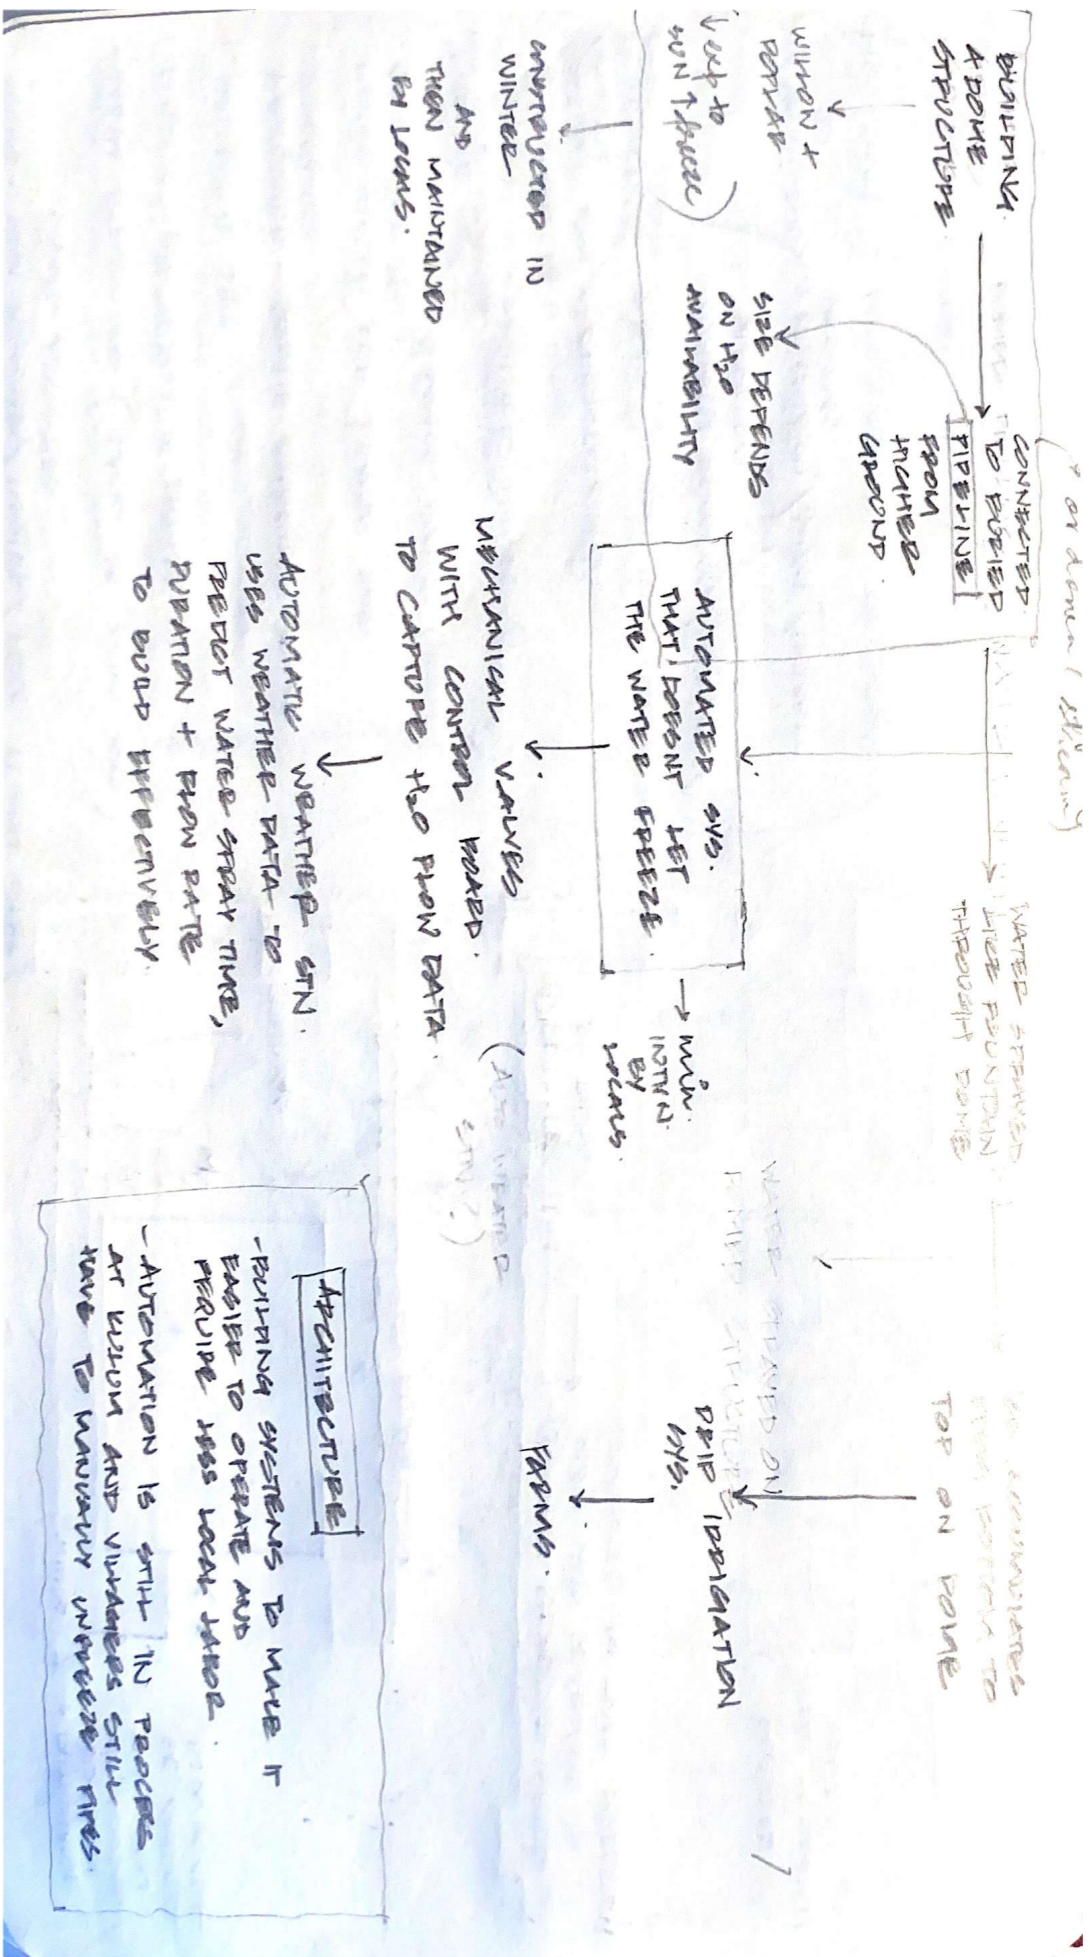 * or dam (stream)
BUILDING
A DOME
STRUCTURE.
CONNECTED
TO BURIED
PIPELINE
FROM
HIGHER
GROUND.
WATER SPRAYED
LIKE FOUNTAIN
THROUGH DOME
ICE ACCUMULATES
FROM BOTTOM TO
TOP ON DOME
WILLOW +
POPLAR
(↓ exp to
sun ↑ freeze)
CONSTRUCTED IN
WINTER
AND
THEN MAINTAINED
BY LOCALS.
SIZE DEPENDS
ON H2O
AVAILABILITY
AUTOMATED SYS.
THAT DOESNT LET
THE WATER FREEZE
→ min.
INTVN.
BY
LOCALS.
MECHANICAL VALVES
WITH CONTROL BOARD.
TO CAPTURE H2O FLOW DATA.
AUTOMATIC WEATHER STN.
USES WEATHER DATA TO
PREDICT WATER SPRAY TIME,
DURATION + FLOW RATE
TO BUILD EFFECTIVELY.
WATER STORED ON
DOMED STRUCTURE
DRIP IRRIGATION
SYS.
FARMS.
ARCHITECTURE
- BUILDING SYSTEMS TO MAKE IT
EASIER TO OPERATE AND
REQUIRE LESS LOCAL LABOR.
- AUTOMATION IS STILL IN PROCESS
AT KULUM AND VILLAGERS STILL
HAVE TO MANUALLY UNFREEZE PIPES.